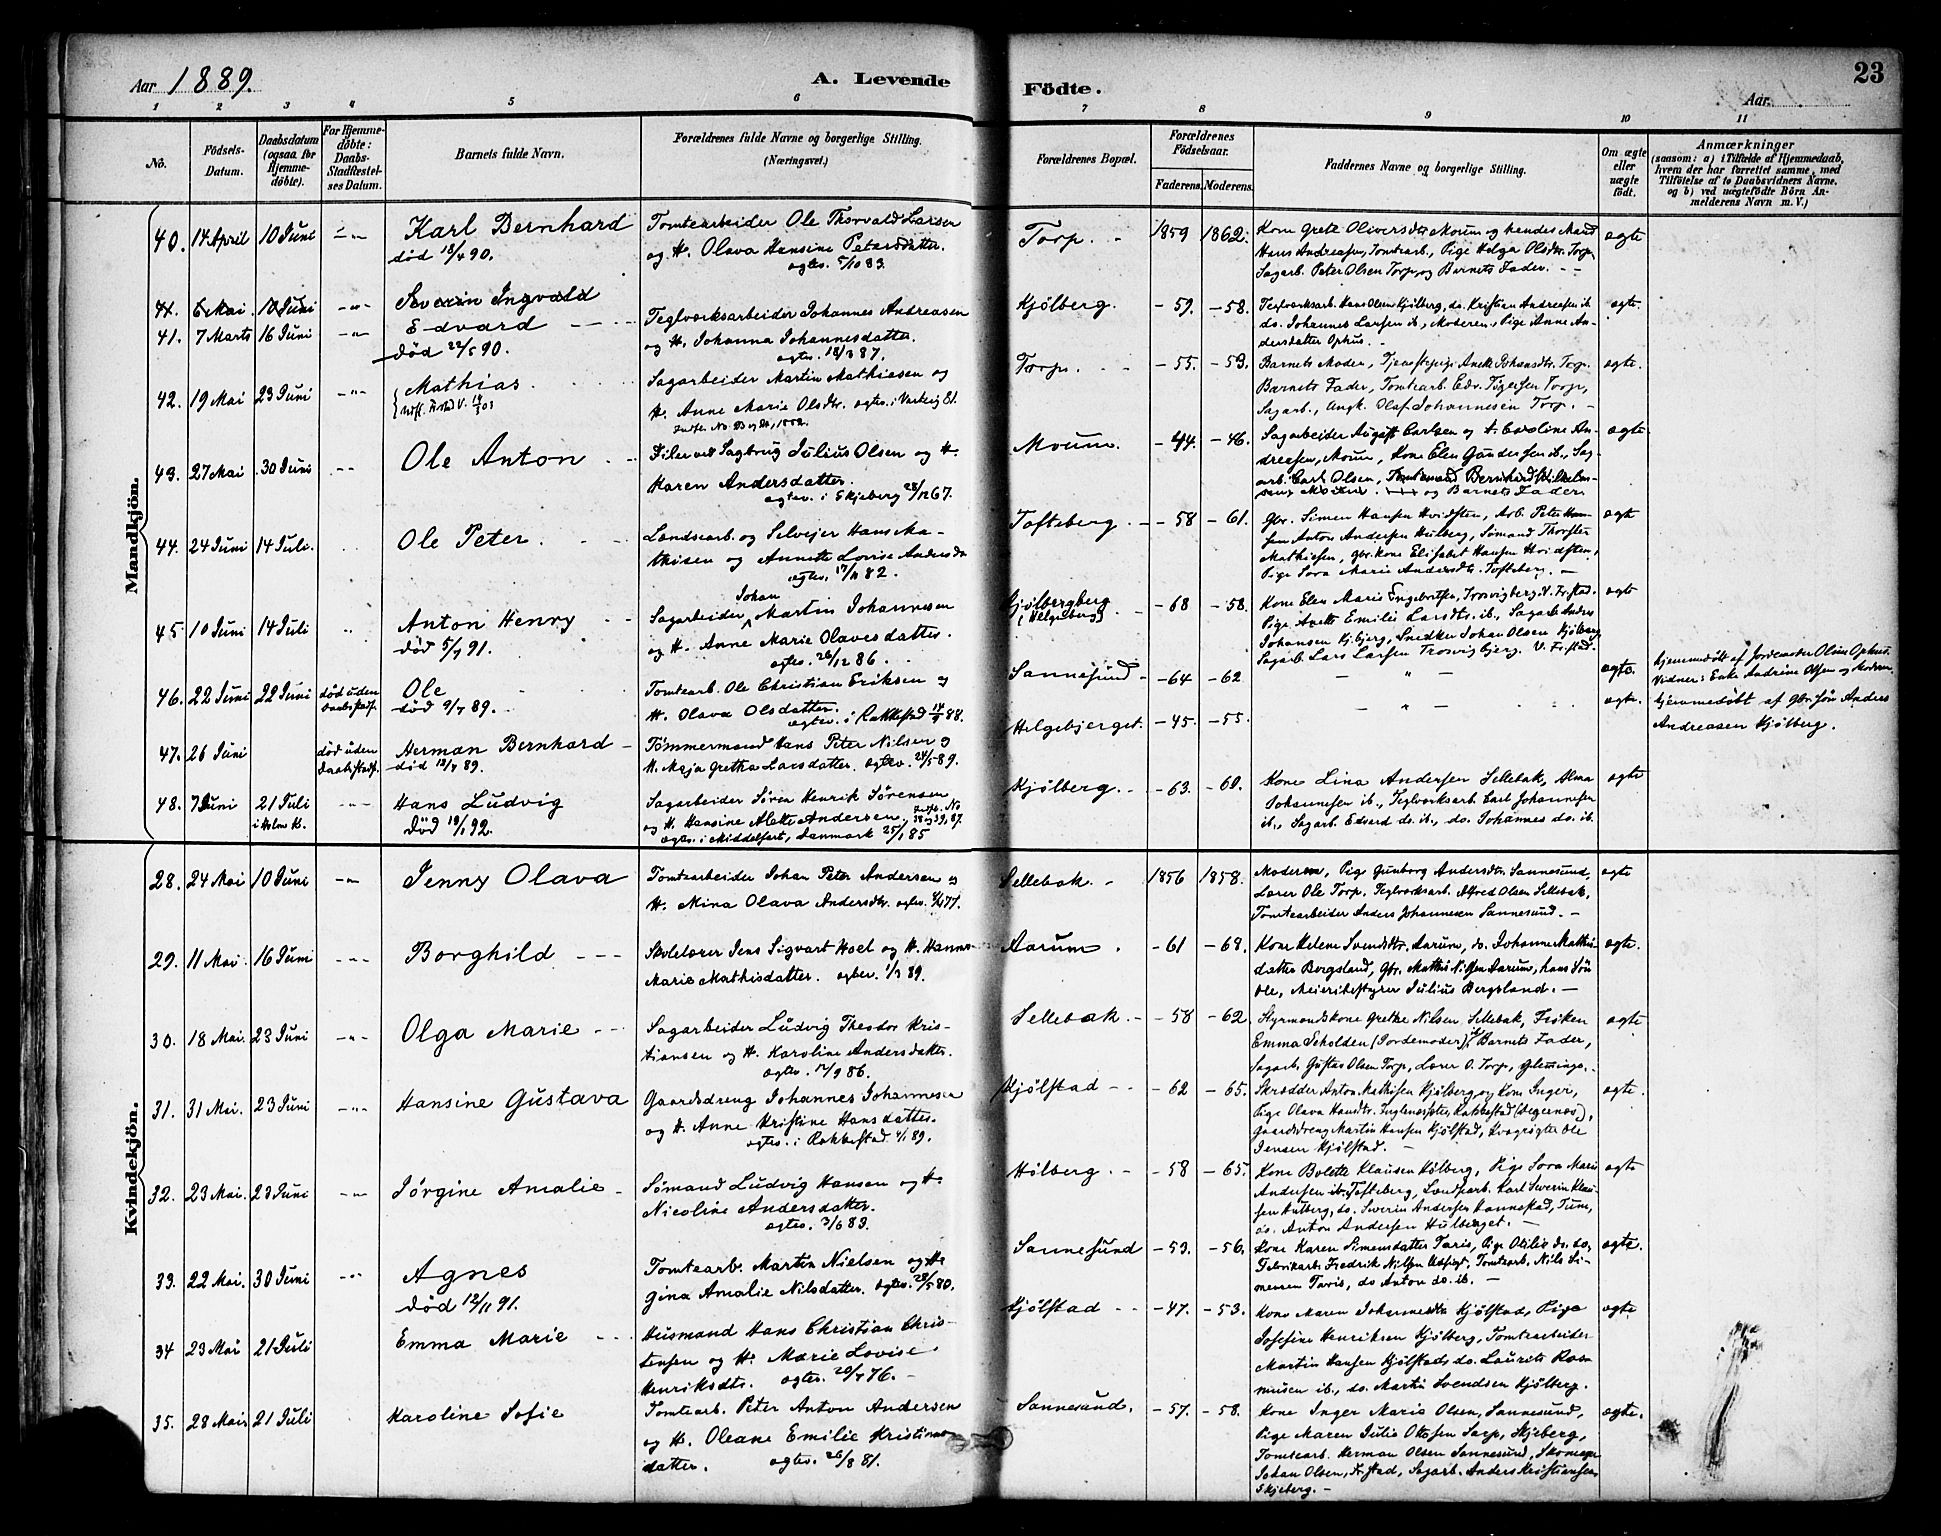 Aar 1889.
A. Levende
Födte.
Aar.
23
1 2 3 4 5 6 7 8 9 10 11
No.
Födsels-
Datum.
Daabsdatum
(ogsaa for
Hjemme-
döbte).
For Hjemme-
döbte:
Daabs-
Stadfæstel-
ses Datum.
Barnets fulde Navn.
Forældrenes fulde Navne og borgerlige Stilling.
(Næringsvei.)
Forældrenes Bopæl.
Forældrenes
Födselsaar.
Faderens. Moderens.
Faddernes Navne og borgerlige Stilling.
Om ægte
eller
uægte
födt.
Anmærkninger
(saasom: a) i Tilfælde af Hjemmedaab,
hvem der har forrettet samme, med
Tilföielse af to Daabsvidners Navne,
og b) ved uægtefödte Börn An-
melderens Navn m. V.)
Mandkjön.
40. 14 April 10 Juni Karl Bernhard
död 18/4 90.
Tomtearbeider Ole Thorvald Larsen
og H. Olava Hansine Petersdatter.
Torp. 1859 1862.
Kone Grete Oliversdtr Moum og hendes Mand
Hans Andreasen, Tomtearb., Pige Helga Olsdtr. Torp,
Sagarb. Peter Olsen Torp, og Barnets Fader.
ægte
41. 6 Mai 10 Juni Severin Ingvald
41. 7 Marts 16 Juni Edvard
död 22/5 90.
Teglværksarbeider Johannes Andreasen
og H. Johanna Johannesdatter.
Kjölberg. - 59. - 58.
Teglværksarb. Hans Olsen Kjölberg, do. Kristian Andreasen ib.
do. Johannes Larsen ib., Moderen, Pige Anne An-
dersdatter Ophus.
ægte.
42. 19 Mai 23 Juni Mathias.
Sagarbeider Martin Mathiesen og
H. Anne Marie Olsdtr.
Torp. - 55. - 59.
Barnets Moder, Tjenestepige Anette Johansdtr. Torp
Barnets Fader, Tomtearb. Edv. Torp,
Sagarb., Angk. Olaf Johannesen Torp.
ægte.
43. 27 Mai 30 Juni Ole Anton
Filer ved Sagbrug Julius Olsen og H.
Karen Andersdatter.
ægtev. i Skjeberg 28/12 67.
Moum. - 44. - 46.
Sagarbeider August Carlsen og H. Caroline An-
dreasen, Moum, Kone Elen Gundersen ib., Sag-
arb. Carl Olsen,
og Barnets Fader
ægte
44. 24 Juni 14 Juli. Ole Peter.
og Selveier Hans
og Annette Lovise Andersdtr
ægtev. 17/11 82.
Tofteberg. - 58 - 61.
Gbr. Simen Hansen Hvidsten, Arb. Peter Han-
sen Anton Andersen Hulberg, Sömand
Mathisen, gbr. kone Elisabet Hansen Hvidsten,
Pige Sora Marie Andersdtr. Tofteberg.
ægte
45. 10 Juni 14 Juli Anton Henry
död 5/4 91.
Johan
Sagarbeider Martin Johannesen
og H. Anne Marie Olavesdatter.
ægtev. 26/12 86.
Kjölbergberg
(Helgeberg) - 68 - 58.
Kone Elen Marie Engebretsen, Trosvigberg V. Fr.stad.
Pige Anette Emilie Larsdtr. ib., Sagarb. Anders
Johansen Kjölbjerg, Snedker Johan Olsen Kjölberg
Sagarb. Lars Larsen Trosvigbjerg. V. Fr.stad.
ægte
46. 22 Juni 22 Juni död uden
Daabsstadf.
Ole
död 9/7 89.
Tomtearb. Ole Christian Eriksen og
H. Olava Olsdatter.
ægtev. i Rakkestad 14/9 88.
Sannesund - 64 - 62
ægte.
Hjemmedöbt af Jordemoder Oline Ophus.
Vidner: Enke Andrine Olsen og Moderen.
47. 26 Juni död uden
Daabsstadf.
Herman Bernhard
död 12/7 89.
Tömmermand Hans Peter Nilsen og
H. Maja Grethe Larsdatter. ægtev. 24/5 89.
Helgebjerget. - 45. - 55.
ægte.
hjemmedöbt af gbr. sön Anders
Andreasen Kjölberg.
48. 7 Juni 21 Juli
Hans Ludvig
död 19/1 92.
Sagarbeider Sören Henrik Sörensen
og H. Hansine Alette Andersen.
ægtev. i Middelfart, Danmark 25/1 85
Kjölberg. - 63. - 60.
Kone Lina Andersen Sellebak, Alma
Johannesen ib., Teglværksarb. Carl Johannesen
ib., Sagarb. Edvard do. ib., do. Johannes do. ib.
ægte
Kvindekjön.
28. 24 Mai 10 Juni Jenny Olava
Tomtearbeider Johan Peter Andersen og
H. Mina Olava Andersdtr.
Sellebak. 1856 1858.
Moderen, Pige Gunborg Andersdtr. Sannesund,
Lærer Ole Torp, Teglværksarb. Alfred Olsen Sellebak,
Tomtearbeider Anders Johannesen Sannesund.
ægte
29. 11 Mai 16 Juni Borghild
Skolelærer Jens Sigvart Hoel og H. Hanna
Marie Mathisdatter. ægtev. 1/3 89.
Aarum. - 61 - 68.
Kone Helene Svendsdtr. Aarum, do. Johanne Mathis-
datter Borgsland, Gbr. Mathis Nilsen Aarum, hans Sön
Ole, Meieribestyrer Julius Bergsland.
ægte.
30. 18 Mai. 23 Juni Olga Marie
Sagarbeider Ludvig Theodor Kris-
tiansen og H. Karoline Andersdatter.
ægtev. 17/9 86.
Sellebak. - 58 - 62.
Styrmandskone Grethe Nilsen, Sellebak, Fröken
Emma Scholden (Jordemoder) Barnets Fader,
Sagarb. Gustav Olsen Torp, Lærer O. Torp, Glemminge.
ægte
31. 31 Mai. 23 Juni Hansine Gustava
Gaardsdreng Johannes Johannesen
og H. Anne Kristine Hansdatter.
ægtev. i Rakkestad 4/1 89.
Kjölstad - 62 - 65.
Skrædder Anton Mathisen Kjölberg og Kone Inger,
Pige Olava Hansdtr. Rakkestad (Degernes),
Gaardsdreng Martin Hansen Kjölstad, Kvægrögter Ole
Jensen Kjölstad.
ægte.
32. 23 Mai. 23 Juni Jörgine Amalie
Sömand Ludvig Hansen og H.
Nicoline Andersdatter.
Hölberg - 58 - 65.
Kone Bolette Klausen Hölberg, Pige Sora Marie
Andersen ib. Tofteberg, Landarb. Karl Severin Klau-
sen Hulberg, do. Severin Andersen Hannestad, Tune,
do. Anton Andersen Hulberget.
ægte
33. 22 Mai. 30 Juni Agnes
död 12/11 91.
Tomtearb. Martin Nielsen og H.
Gina Amalie Nilsdatter. ægtev. 28/5 80.
Sannesund - 53. - 56.
Kone Karen Simensdatter Taris, Pige Otilie do. do,
Fabrikarb. Fredrik Nilsen Tomtearb. Nils Si-
mensen Taris, do Anton do. ib.
ægte.
34 23 Mai 21 Juli Emma Marie
Husmand Hans Christian Chris-
tensen og H. Marie Lovise
Henriksdtr. ægtev. 20/7 76.
Kjölstad - 47. - 53.
Kone Maren Johannesdtr Kjölstad, Pige
Josefine Henriksen Kjölberg, Tomtearbeider
Martin Hansen Kjölstad, do. Laurits Ras-
musen ib., do. Martin Svendsen Kjölberg.
ægte
35. 28 Mai 21 Juli Karoline Sofie
Tomtearb. Peter Anton Andersen
og H. Oleane Emilie Kristians-
datter. ægtev. 26/8 81.
Sannesund. - 57. - 58.
Kone Inger Marie Olsen, Sannesund,
Pige Maren Julie Olesen Sarp, Skjeberg,
Tomtearb. Herman Olsen Sannesund, Skomager
Johan Olsen, Fr.stad, Sagarb. Anders Kristiansen,
Skjeberg.
ægte.